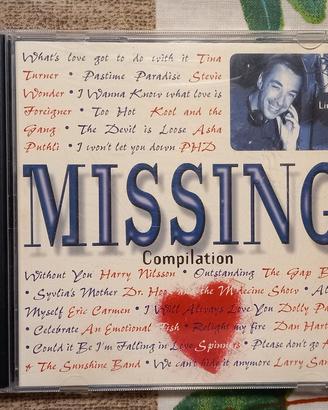 What's love got to do with it Tina
Turner • Pastime Paradise Stevie
Wonder • I Wanna Know what love is
Foreigner • Too Hot Kool and the
Gang • The Devil is Loose Asha
Puthli • I won't let you down PHD
Li
MISSING
Compilation
Without You Harry Nilsson • Outstanding The Gap B
• Syvlia's Mother Dr. Hoo and the Medecine Show • Al
Myself Eric Carmen • I Will Allways Love You Dolly Pa
• Celebrate An Emotional Fish • Relight my fire Dan Hart
• Could it Be I'm Falling in Love Spinners • Please don't go
& The Sunshine Band • We can't hide it anymore Larry San